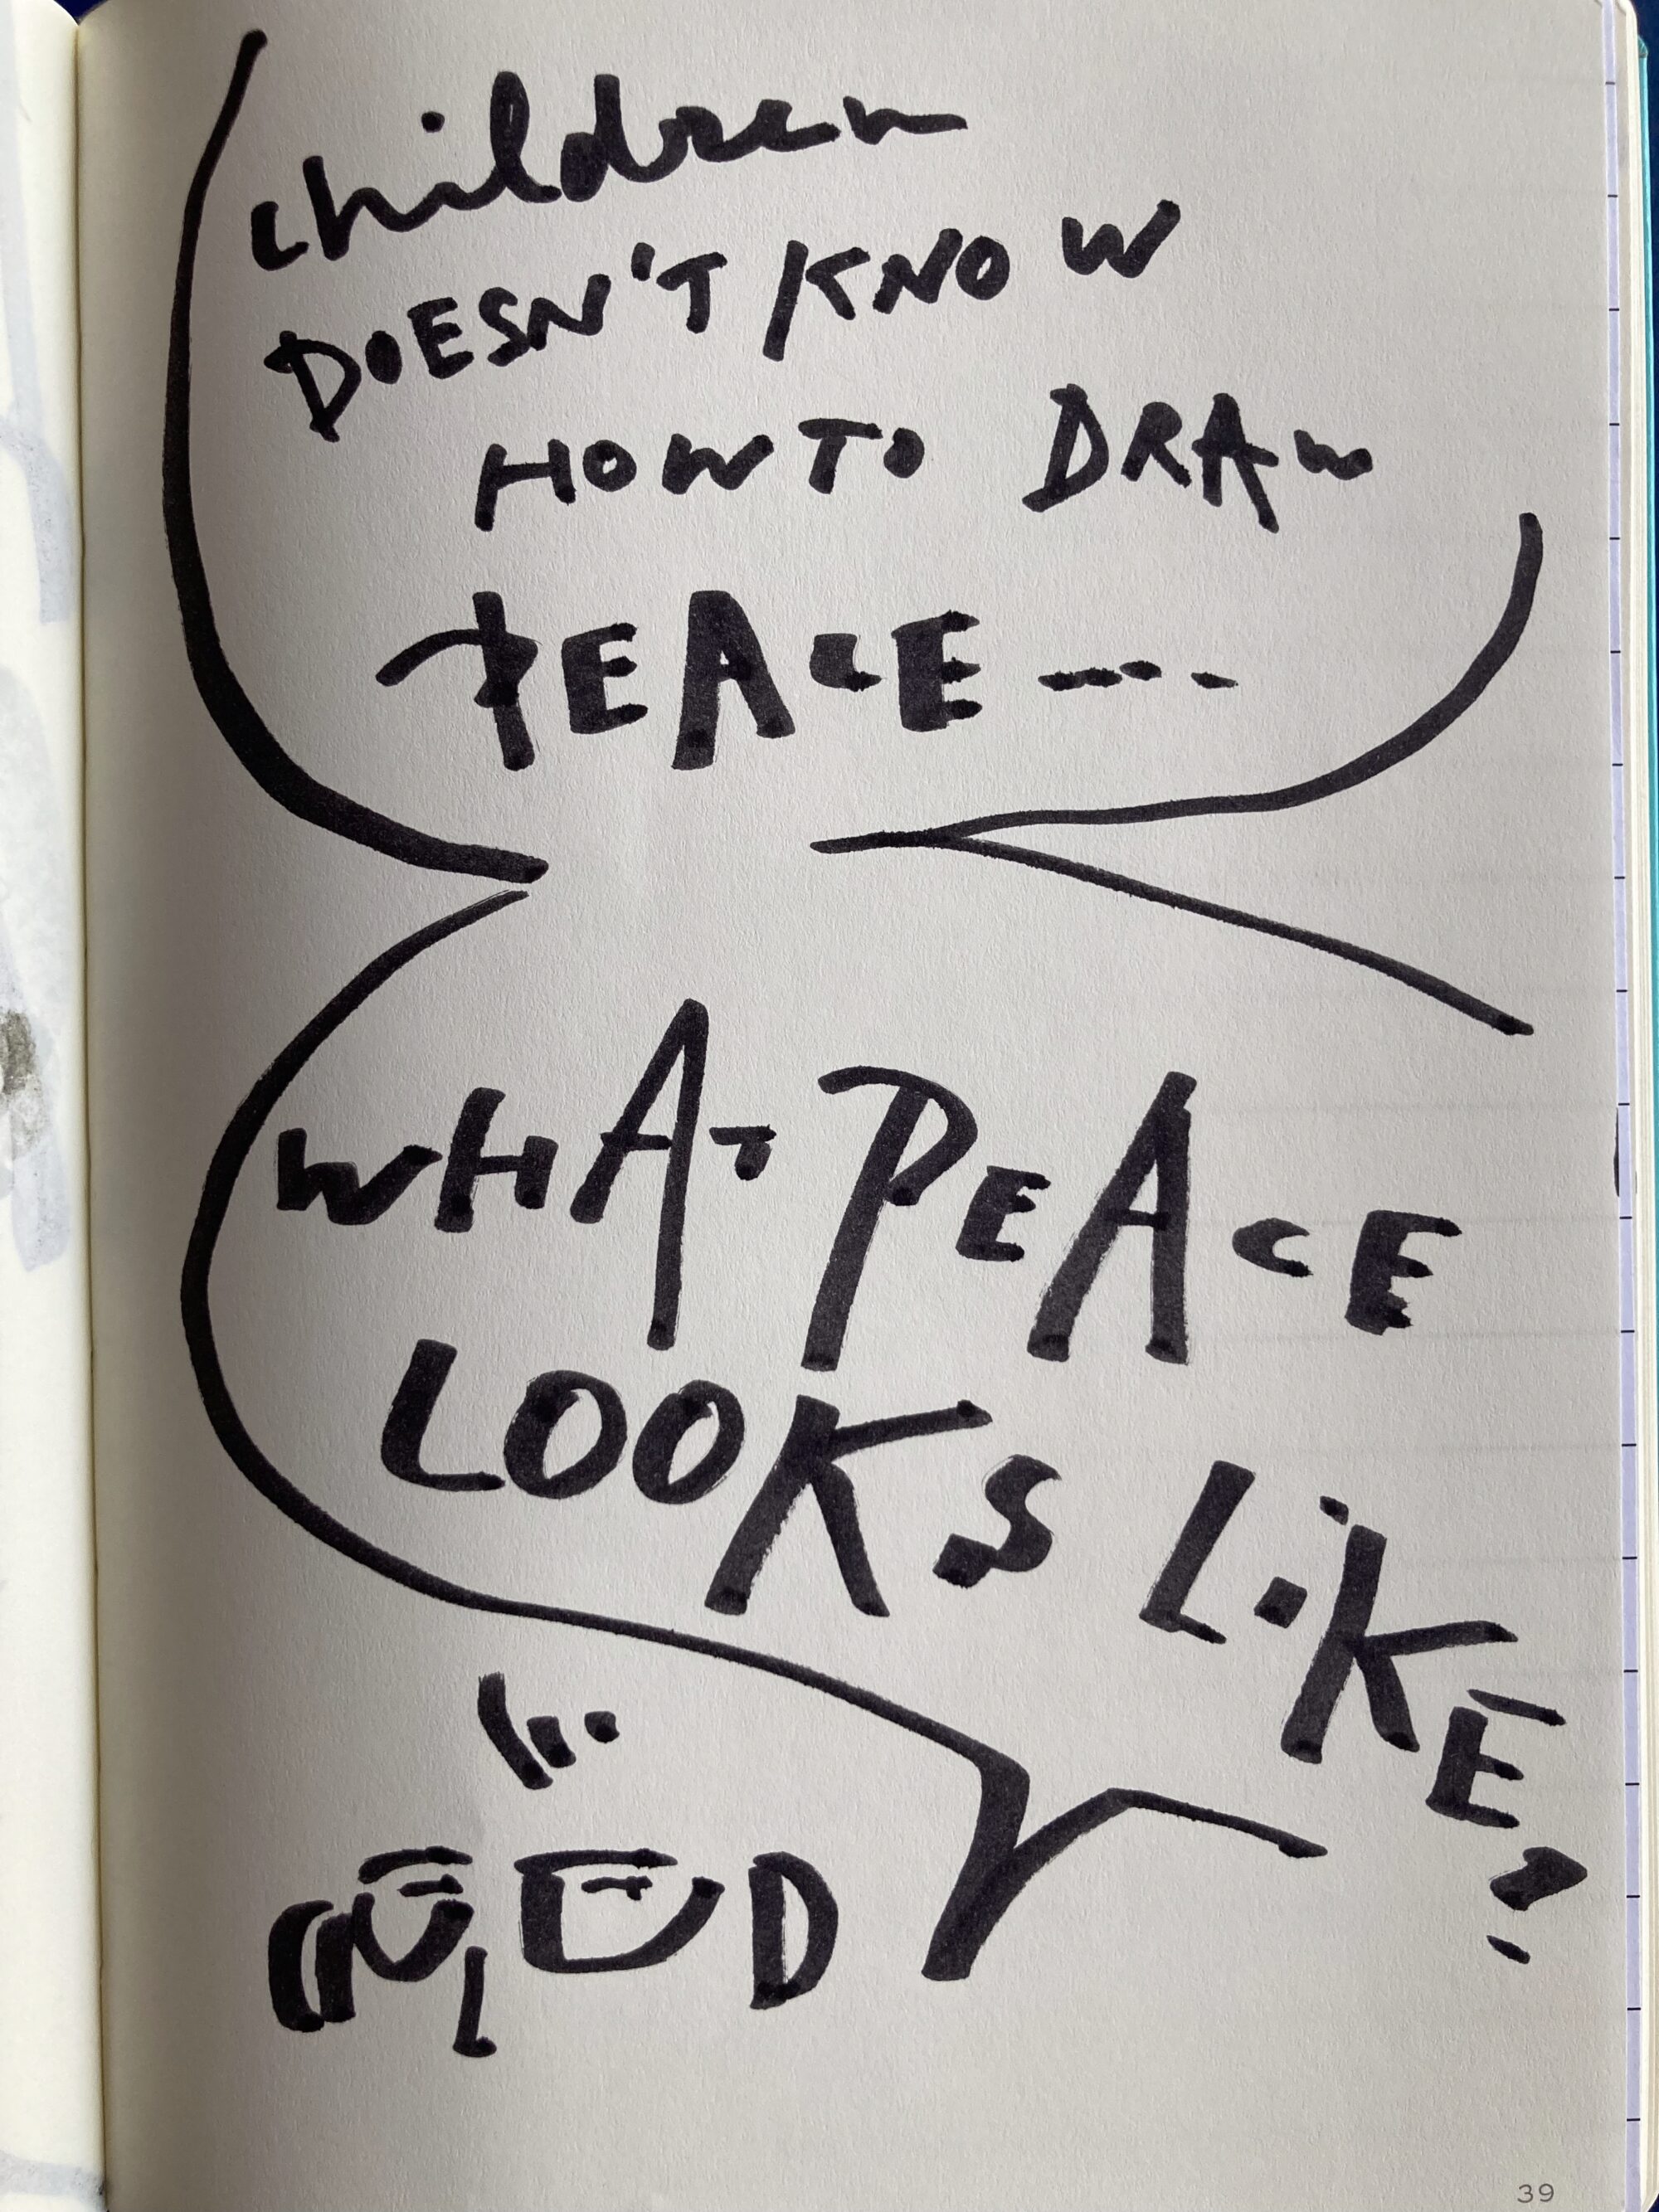 children
DOESN'T KNOW
HOW TO DRAW
PEACE----
WHAT PEACE
LOOKS LIKE?
39